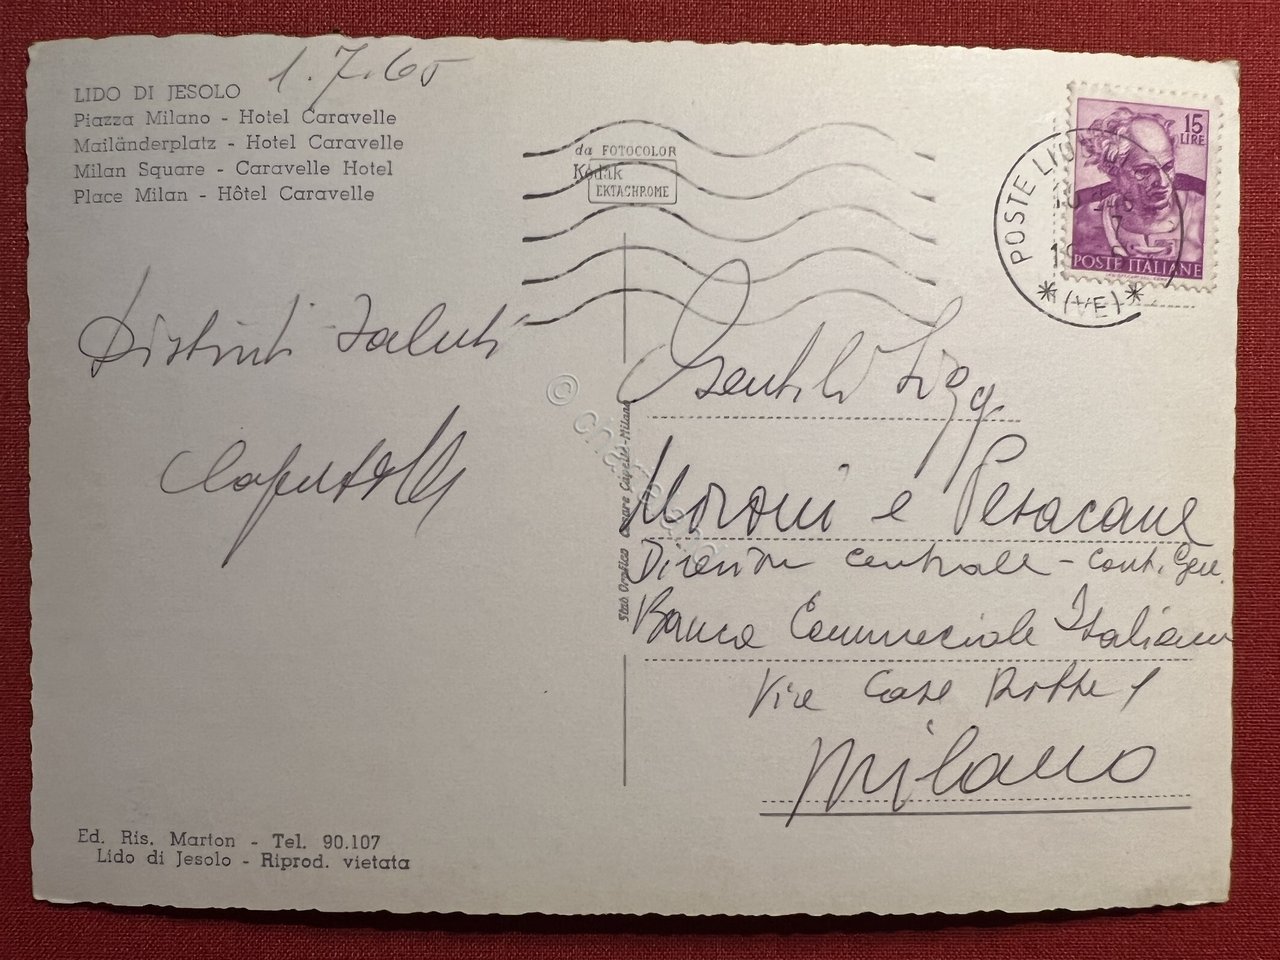 1.7.65
LIDO DI JESOLO
Piazza Milano - Hotel Caravelle
Mailänderplatz - Hotel Caravelle
Milan Square - Caravelle Hotel
Place Milan - Hôtel Caravelle
da FOTOCOLOR
Kodak
EKTACHROME
15
LIRE
POSTE ITALIANE
POSTE
(VE)
Distinti Saluti
Gentili Sigg
Moroni e Pesacane
Direzione Centrale - Cont. Gen.
Banca Commerciale Italiana
Milano
Stab. Grafico Cesare Capello - Milano
Ed. Ris. Marton - Tel. 90.107
Lido di Jesolo - Riprod. vietata